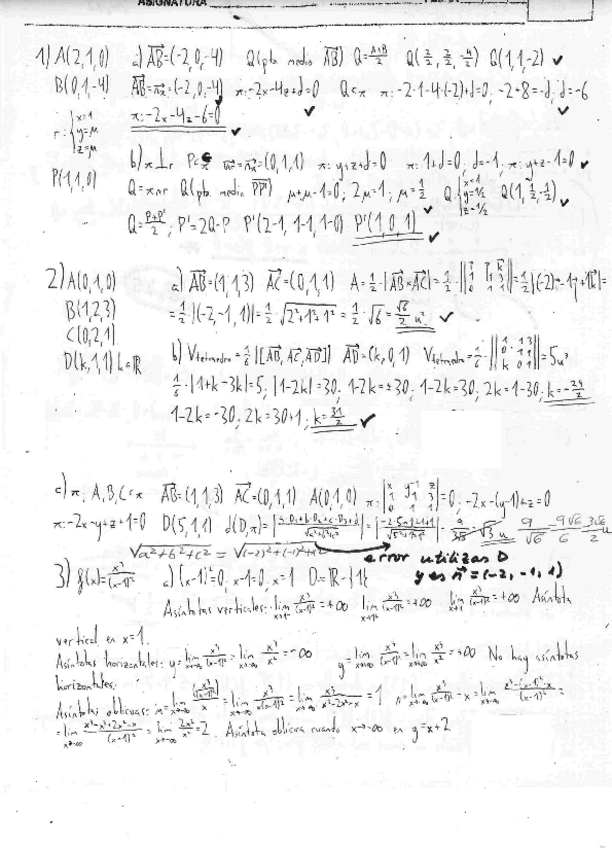 ASIGNATURA
1) A(2,1,0) a) AB=(-2,0,-4) Q(pto medio AB) Q=A+B/2 Q(2/2, 2/2, -4/2) Q(1,1,-2) ✓
B(0,1,-4) AB=nπ=(-2,0,-4) π:-2x-4z+d=0 Q∈π π:-2·1-4·(-2)+d=0; -2+8=-d; d=-6
r={x=1 y=μ z=μ π:-2x-4z-6=0 ✓
b) π⊥r P∈π =nπ=(0,1,1) π: y+z+d=0 π: 1+d=0; d=-1, π: y+z-1=0 ✓
P(1,1,0) Q=π∩r Q(pto medio PP') μ+μ-1=0; 2μ=1; μ=1/2 Q{x=1 y=1/2 z=1/2 Q(1,1/2,1/2) ✓
Q=P+P'/2; P'=2Q-P P'(2-1, 1-1, 1-0) P'(1,0,1) ✓
2) A(0,1,0) a) AB=(1,1,3) AC=(0,1,1) A=1/2·|AB×AC|=1/2·||i j k 1 1 3 0 1 1||=1/2|(-2)i-1j+1k|=
B(1,2,3) =1/2·|(-2,-1,1)|=1/2·√2²+1²+1²=1/2·√6=√6/2 u² ✓
C(0,2,1)
D(k,1,1) k∈ℝ b) Vtetraedro=1/6|[AB,AC,AD]| AD=(k,0,1) Vtetraedro=1/6·||1 1 3 0 1 1 k 0 1||=5u³
1/6·|1+k-3k|=5; |1-2k|=30; 1-2k=±30; 1-2k=30; 2k=1-30; k=-29/2
1-2k=-30; 2k=30+1; k=31/2 ✓
c) π: A,B,C∈π AB=(1,1,3) AC=(0,1,1) A(0,1,0) π:|x y-1 z 1 1 3 0 1 1|=0; -2x-(y-1)+z=0
π:-2x-y+z+1=0 D(5,1,1) d(D,π)= 9/√6 = 9√6/6 = 3√6/2 u
√a²+b²+c² = √(-2)²+(-1)²+1² error utilizas D
3) f(x)=x³/(x-1)² a) (x-1)²=0, x-1=0, x=1 D=ℝ-{1} y es n=(-2,-1,1)
Asíntotas verticales: lim x³/(x-1)²=+∞ lim x³/(x-1)²=+∞ lim x³/(x-1)²=+∞ Asíntota
vertical en x=1.
Asíntotas horizontales: y=lim x³/(x-1)²=lim x³/x²=-∞ y=lim x³/(x-1)²=lim x³/x²=+∞ No hay asíntotas
horizontales.
Asíntotas oblicuas: m=lim =lim x³/x(x-1)²=lim =1 n=lim x³/(x-1)²-x=lim x³-(x-1)²·x/(x-1)²=
=lim x³-x³+2x²-x/(x-1)²=lim 2x²/x²=2. Asíntota oblicua cuando x→-∞ en y=x+2